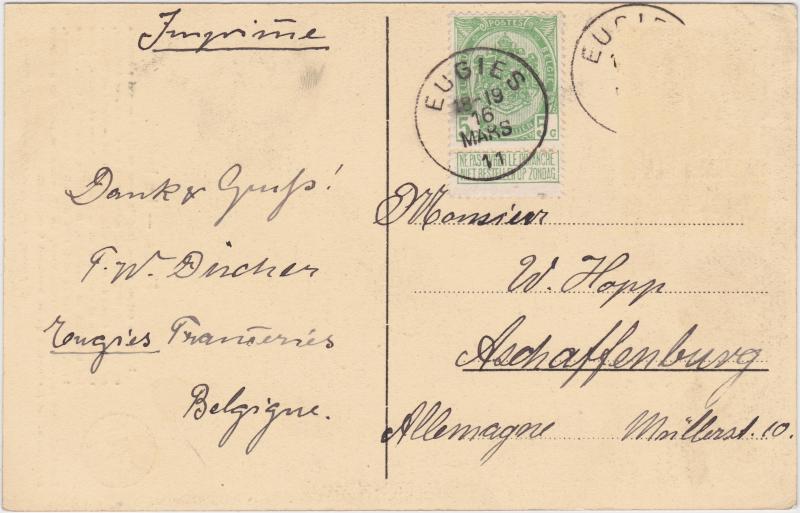 Imprimé
POSTES
BELGIE
5 5 C
EUGIES
18-19
16
MARS
11
NE PAS LIVRER LE DIMANCHE
NIET BESTELLEN OP ZONDAG
EUGI
Dank & Gruß!
F. W. Dücher
Eougies Tranceries
Belgigne.
Monsieur
W. Hopp
Aschaffenburg
Allemagne Müllerst. 10.